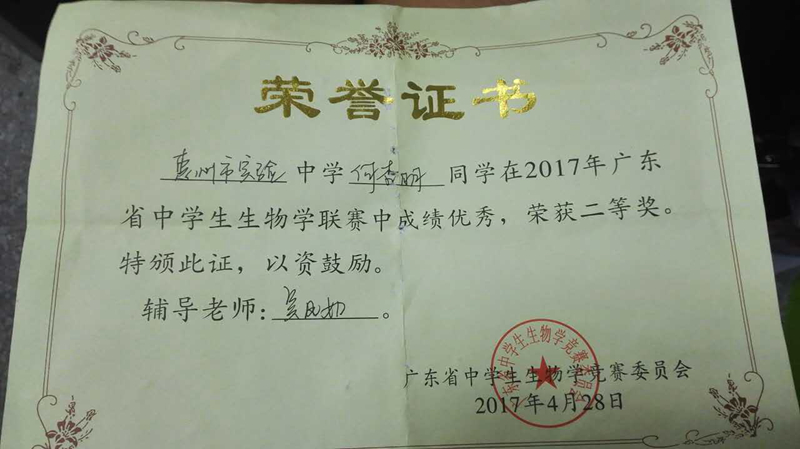 荣誉证书
惠州市实验中学何杏明同学在2017年广东
省中学生生物学联赛中成绩优秀，荣获二等奖。
特颁此证，以资鼓励。
辅导老师：。
广东省中学生生物学竞赛委员会
2017年4月28日